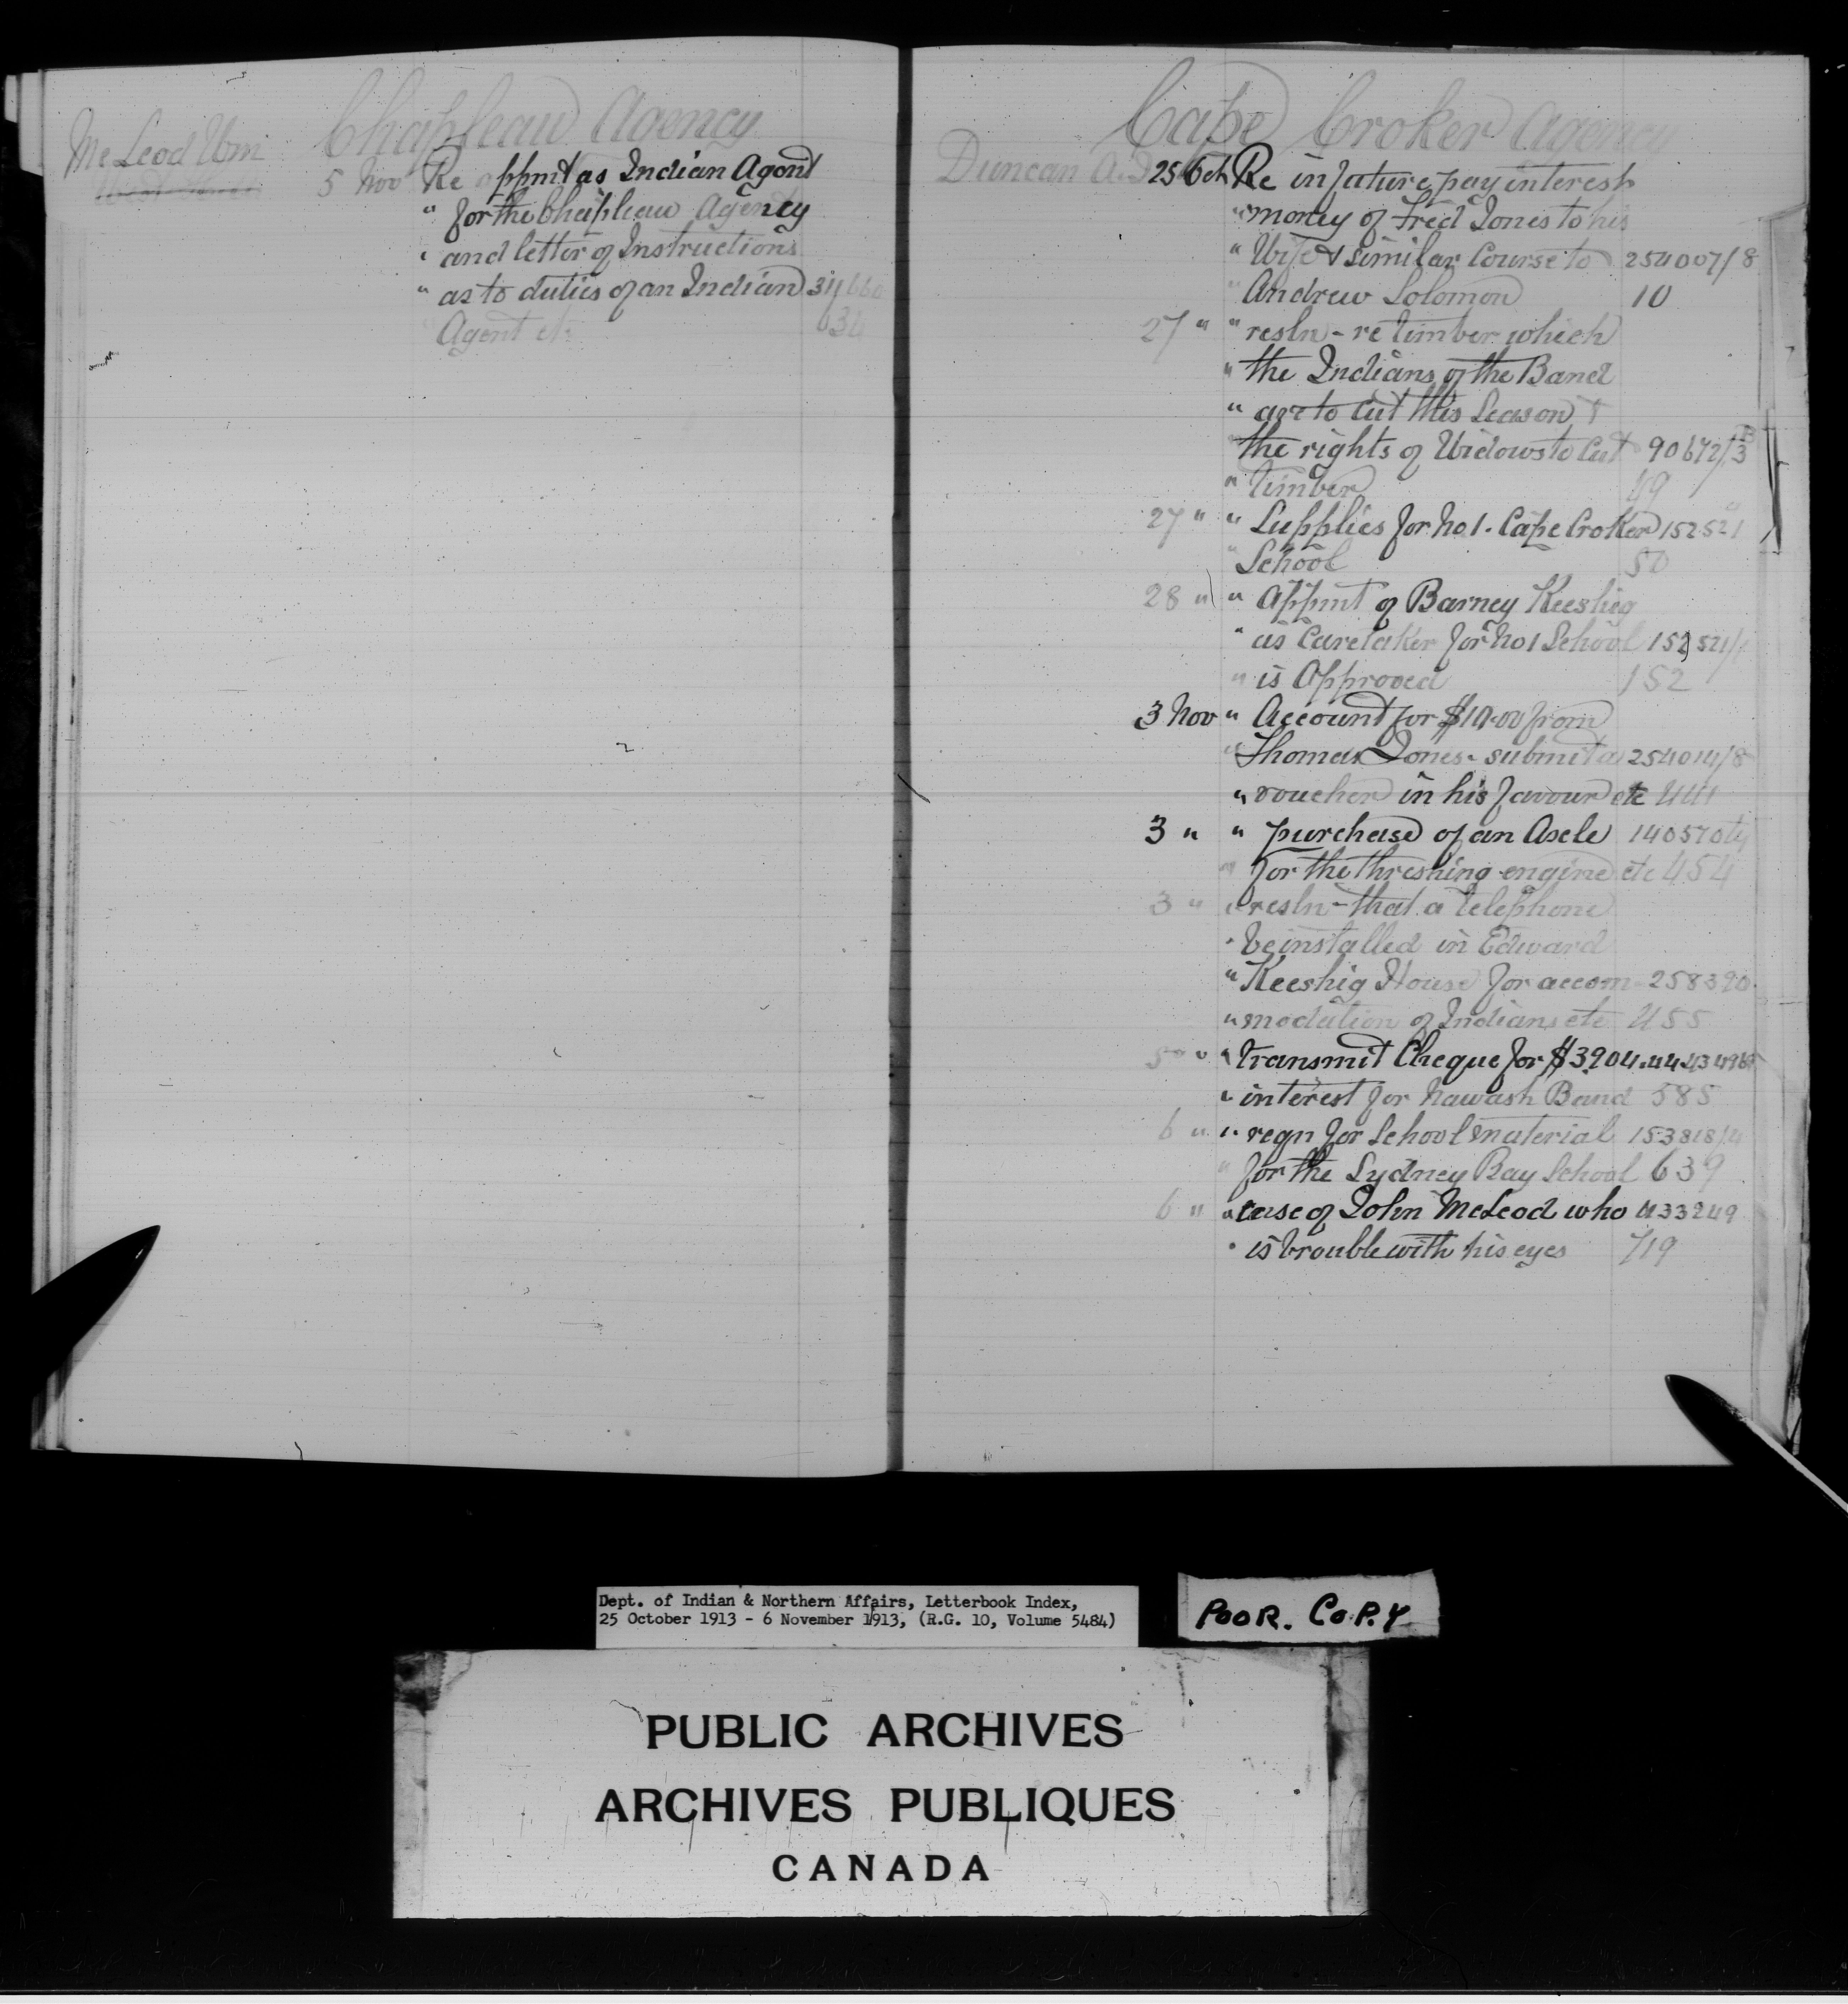 Chapleau Agency
McLeod Wm
5 Nov Re appmt as Indian Agent
" for the Chapleau Agency
" and letter of Instructions
" as to duties of an Indian
Agent etc
Cape Croker Agency
Duncan A. J. 25 Oct Re in future pay interest
" money of Fred Jones to his
" Wife & similar Course to 254007/8
" Andrew Solomon 10
27 " " resln - re timber which
" the Indians of the Band
" are to Cut this Season &
" the rights of Widows to Cut 90672/3
" timber 49
27 " " Supplies for No 1. Cape Croker 152521
" School 50
28 " " Appmt of Barney Keeshig
" as Caretaker for No 1 School 152521/1
" is Approved 152
3 Nov " Account for $10.00 from
" Thomas Jones - submit a 254014/8
" voucher in his favour etc 441
3 " " purchase of an Axle
" for the threshing engine etc 454
3 " " resln - that a telephone
" be installed in Edward
" Keeshig House for accom- 258390
" modation of Indians etc 455
5 " " transmit Cheque for $3904.44
" interest for Nawash Band 585
6 " " reqn for School material 153818/4
" for the Sydney Bay School 639
6 " " case of John McLeod who 433249
" is trouble with his eyes 719
Dept. of Indian & Northern Affairs, Letterbook Index,
25 October 1913 - 6 November 1913, (R.G. 10, Volume 5484)
POOR. COPY
PUBLIC ARCHIVES
ARCHIVES PUBLIQUES
CANADA